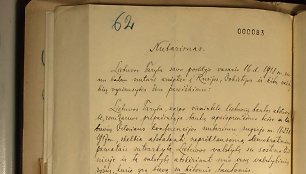 62
000083
Nutarimas.
Lietuvos Taryba savo posėdyje vasario 16 d. 1918 m.
nutarė kreiptis į Rusijos, Vokietijos ir kitų
vyriausybes šiuo pareiškimu:
Lietuvos Taryba, kaip vienintelė lietuvių tautos
remdamos pripažintąja tautų apsisprendimo teise ir
Vilniaus konferencijos nutarimu rugsėjo m. 18-23 d.
1917 m., skelbia atstatanti nepriklausomą demokratiniais
pamatais sutvarkytą Lietuvos valstybę su sostine
ir tą valstybę atskirianti nuo visų valstybinių
ryšių, kurie yra buvę su kitomis tautomis.